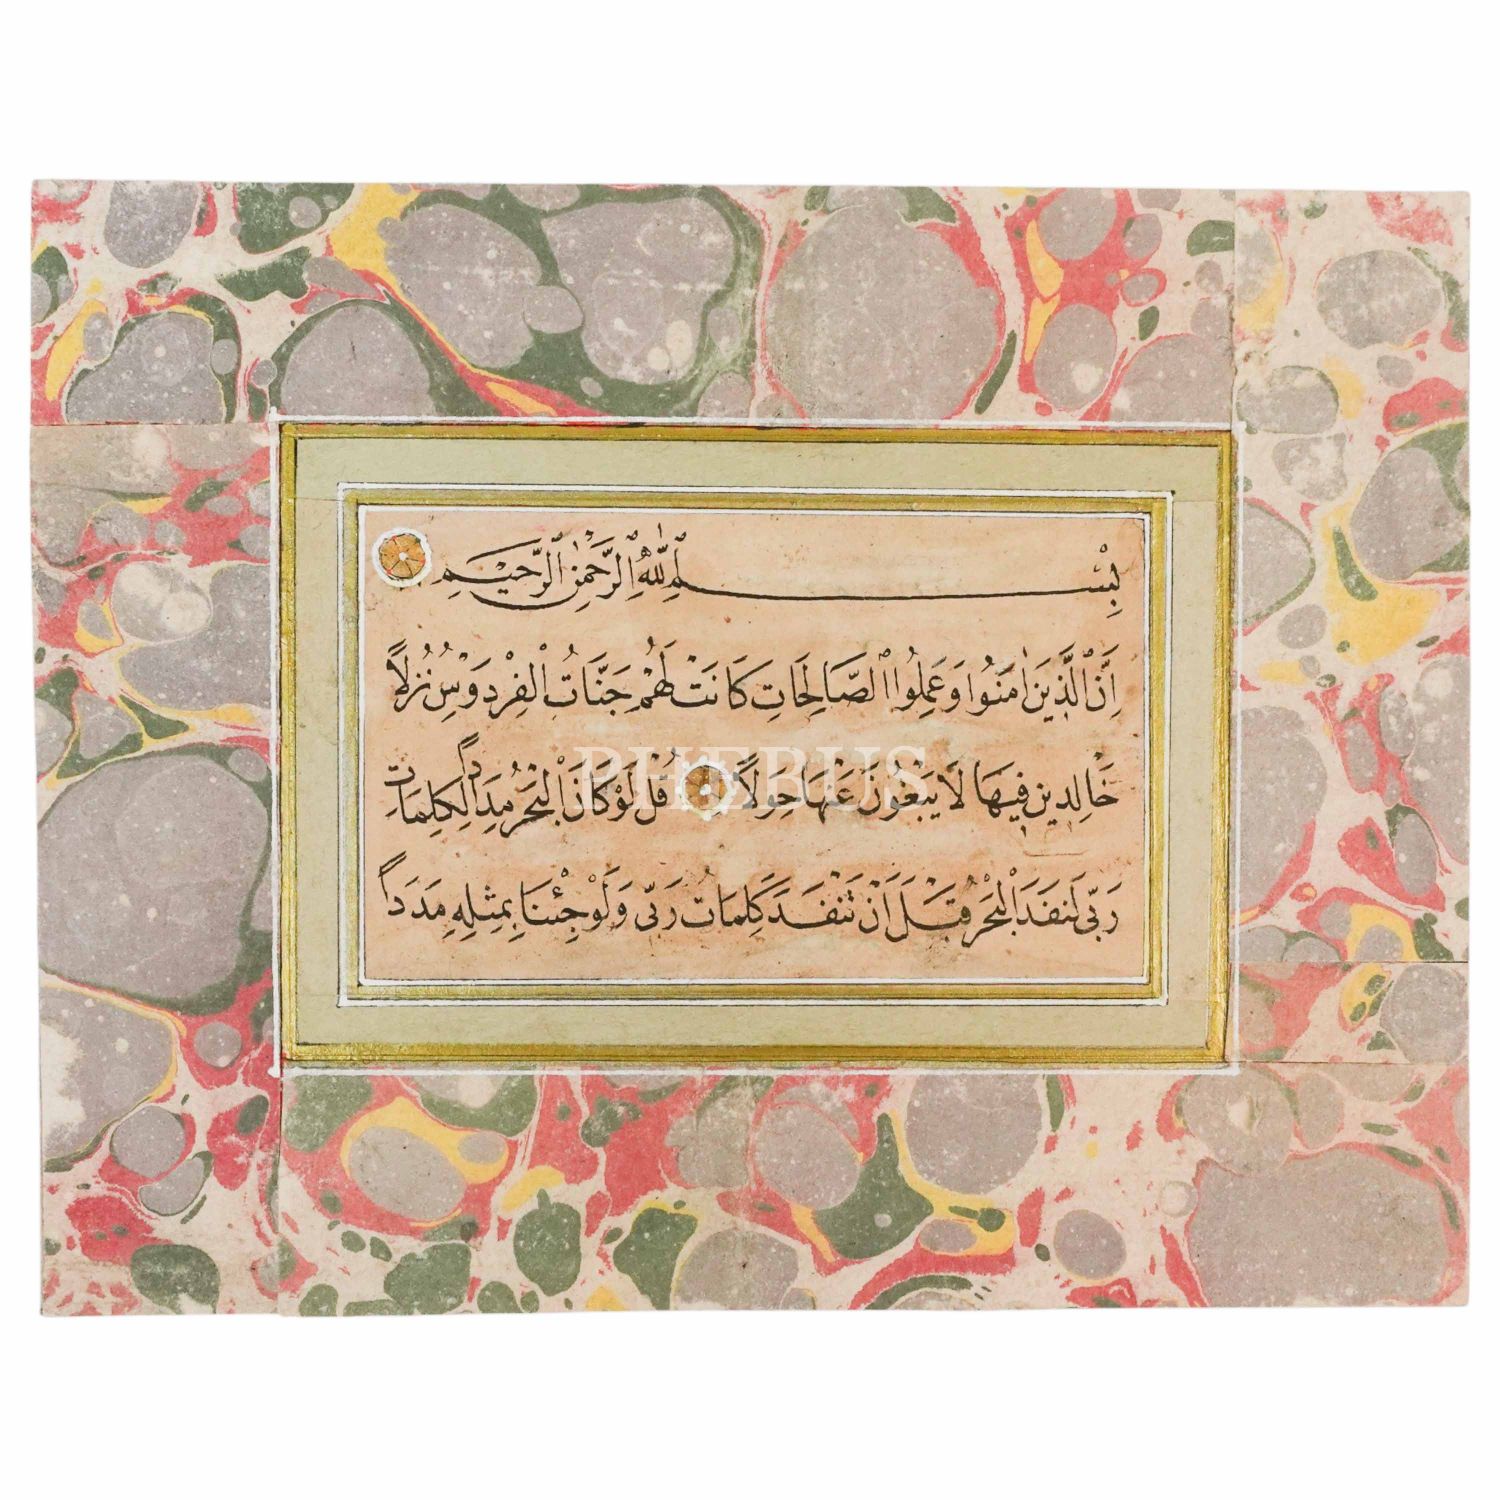 بِسْمِ اللهِ الرَّحْمٰنِ الرَّحِيْمِ
اِنَّ الَّذِينَ اٰمَنُوا وَعَمِلُوا الصَّالِحَاتِ كَانَتْ لَهُمْ جَنَّاتُ الْفِرْدَوْسِ نُزُلاً
خَالِدِينَ فِيهَا لَا يَبْغُونَ عَنْهَا حِوَلاً قُلْ لَوْ كَانَ الْبَحْرُ مِدَاداً لِكَلِمَاتِ
رَبِّى لَنَفِدَ الْبَحْرُ قَبْلَ اَنْ تَنْفَدَ كَلِمَاتُ رَبِّى وَلَوْ جِئْنَا بِمِثْلِهِ مَدَداً
PHEBUS